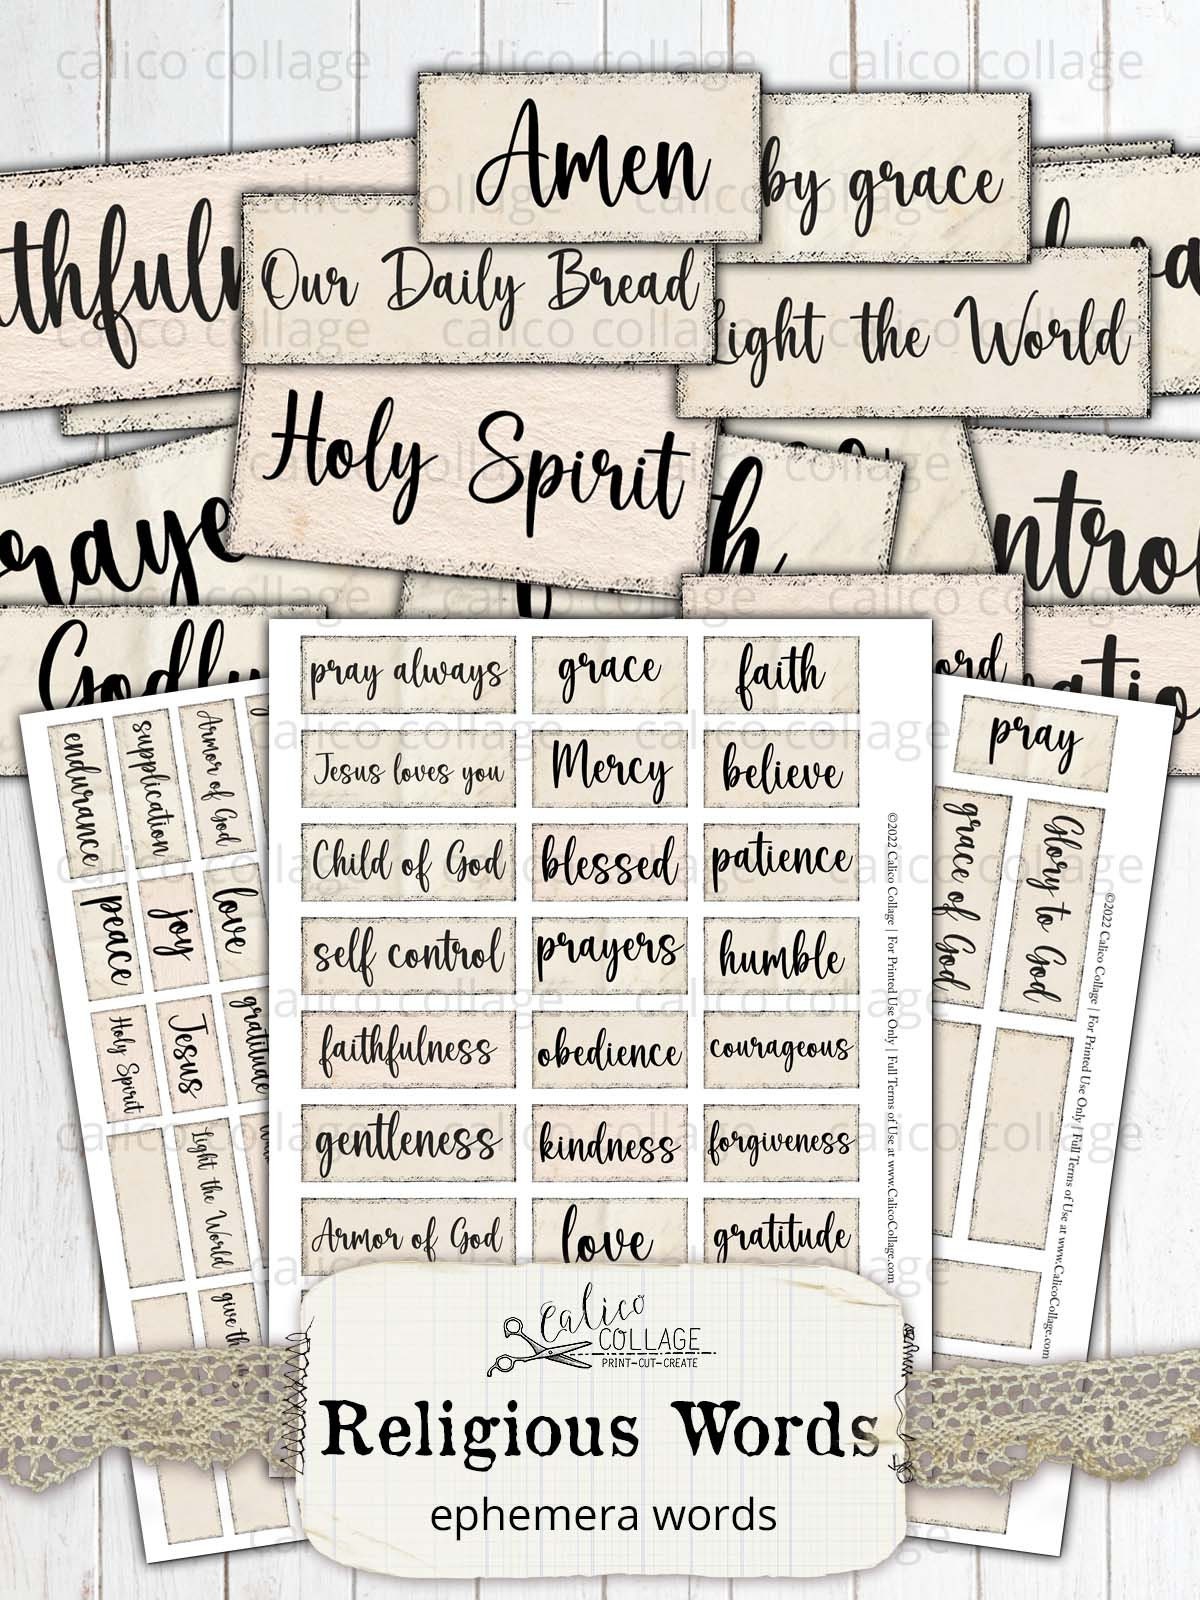 calico collage calico collage calico collage
Amen
by grace
thfuln
Our Daily Bread
Light the World
Holy Spirit
raye
h
ntrol
Godly
ord
atio
pray always
grace
faith
Jesus loves you
Mercy
believe
Child of God
blessed
patience
self control
prayers
humble
faithfulness
obedience
courageous
gentleness
kindness
forgiveness
Armor of God
love
gratitude
©2022 Calico Collage | For Printed Use Only | Full Terms of Use at www.CalicoCollage.com
endurance
supplication
Armor of God
peace
joy
love
Holy Spirit
Jesus
gratitude
Light the World
give th
pray
grace of God
Glory to God
©2022 Calico Collage | For Printed Use Only | Full Terms of Use at www.CalicoCollage.com
Calico
COLLAGE
PRINT-CUT-CREATE
Religious Words
ephemera words